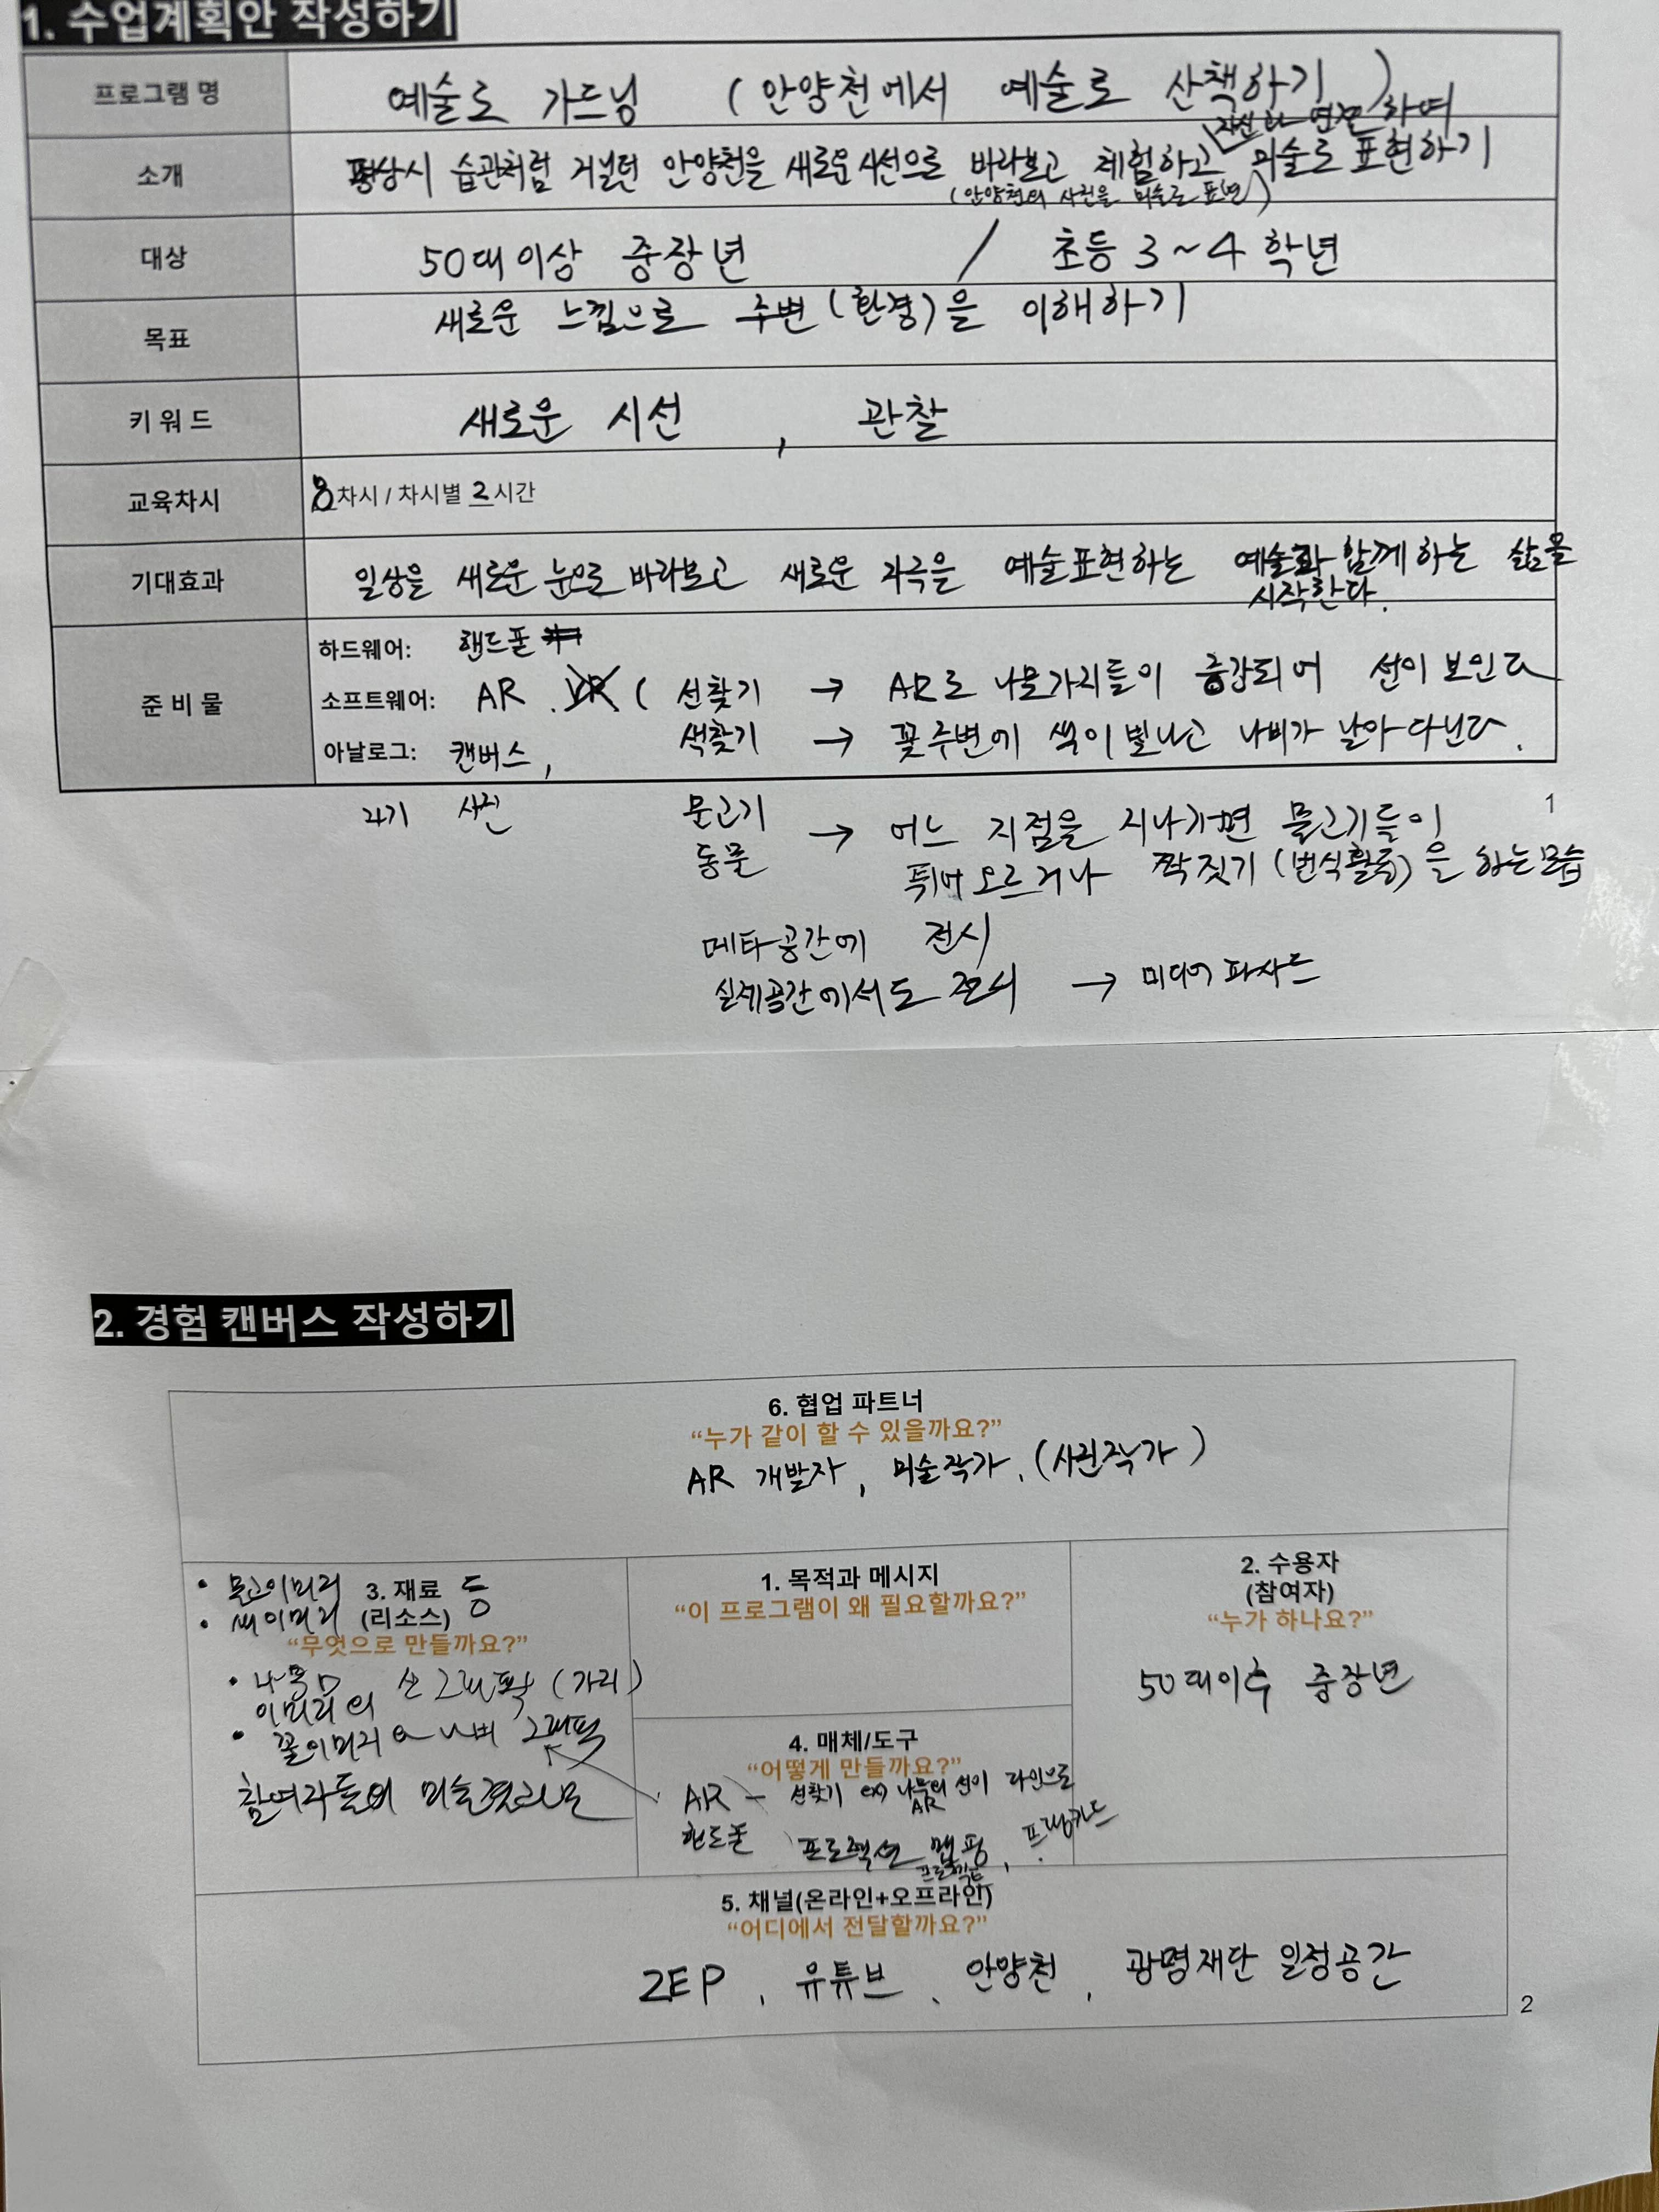 1. 수업계획안 작성하기
프로그램 명
예술로 가드닝 (안양천에서 예술로 산책하기)
소개
자신과 연관하여
평상시 습관처럼 거닐던 안양천을 새로운 시선으로 바라보고 체험하고 미술로 표현하기
(안양천의 사진을 미술로 표현)
대상
50대 이상 중장년 / 초등 3~4 학년
목표
새로운 느낌으로 주변(환경)을 이해하기
키 워 드
새로운 시선, 관찰
교육차시
8차시 / 차시별 2시간
기대효과
일상을 새로운 눈으로 바라보고 새로운 자극을 예술표현하는 예술과 함께하는 삶을
시작한다.
준 비 물
하드웨어: 핸드폰
소프트웨어: AR. VR ( 선찾기 → AR로 나뭇가지들이 증강되어 선이 보인다
아날로그: 캔버스, 색찾기 → 꽃주변에 색이 빛나고 나비가 날아다닌다.
과거 사진
물고기
동물
→ 어느 지점을 지나가면 물고기들이
튀어오르거나 짝짓기(번식활동)을 하는모습
1
메타공간에 전시
실제공간에서도 전시 → 미디어 파사드
2. 경험 캔버스 작성하기
6. 협업 파트너
“누가 같이 할 수 있을까요?”
AR 개발자, 미술작가, (사진작가)
3. 재료 등
(리소스)
“무엇으로 만들까요?”
선 그래픽 (가지)
이미지의
나비 그래픽
참여자들의 미술결과물
1. 목적과 메시지
“이 프로그램이 왜 필요할까요?”
2. 수용자
(참여자)
“누가 하나요?”
50대이후 중장년
4. 매체/도구
“어떻게 만들까요?”
AR - 선찾기 ex) 나무의 선이 라인으로
AR
핸드폰 프로젝션 맵핑,
5. 채널(온라인+오프라인)
“어디에서 전달할까요?”
ZEP, 유튜브, 안양천, 광명재단 일정공간
2